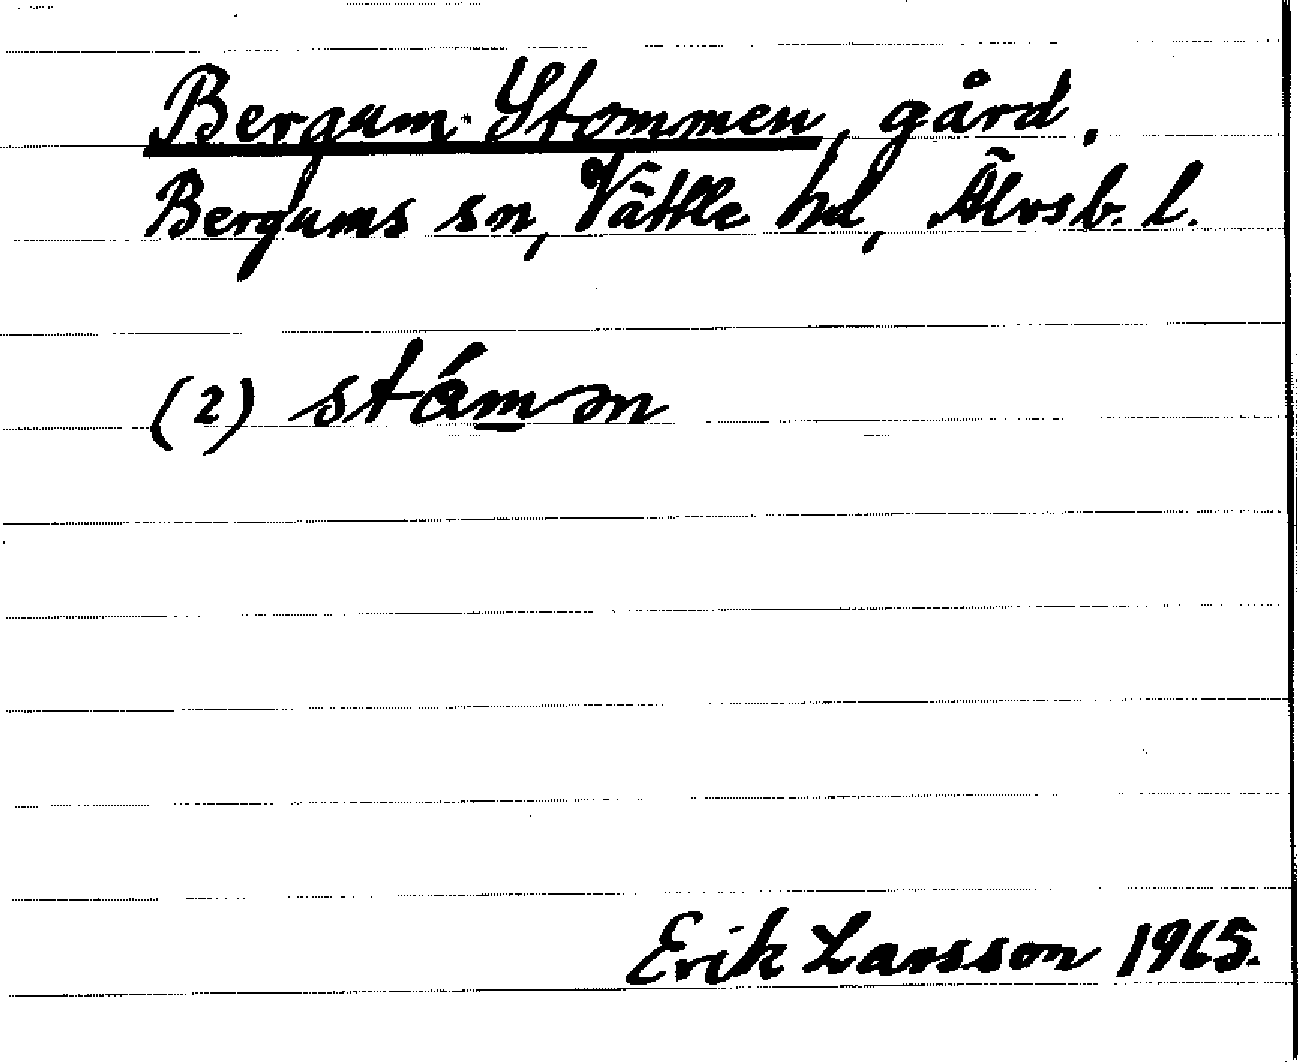 Bergum Stommen, gård,
Bergums sn, Vättle hd, Älvsb. l.
(2) stámən
Erik Larsson 1965.